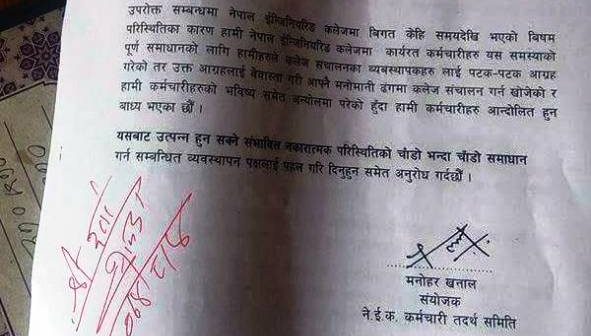 उपरोक्त सम्बन्धमा नेपाल ईन्जिनियरिङ कलेजमा बिगत केहि समयदेखि भएको बिषम
परिस्थितिका कारण हामी नेपाल ईन्जिनियरिङ कलेजमा कार्यरत कर्मचारीहरु यस समस्याको
पूर्ण समाधानको लागि हामीहरुले कलेज संचालनका व्यवस्थापकहरु लाई पटक-पटक आग्रह
गरेको तर उक्त आग्रहलाई बेवास्ता गरी आफ्नै मनोमानी ढंगमा कलेज संचालन गर्न खोजेको र
हामी कर्मचारीहरुको भविष्य समेत अन्योलमा परेको हुँदा हामी कर्मचारीहरु आन्दोलित हुन
बाध्य भएका छौं ।
यसबाट उत्पन्न हुन सक्ने संभावित नकारात्मक परिस्थितिको चाँडो भन्दा चाँडो समाधान
गर्न सम्बन्धित व्यवस्थापन पक्षलाई पहल गरि दिनुहुन समेत अनुरोध गर्दछौं ।
मनोहर खनाल
संयोजक
ने.ई.क. कर्मचारी तदर्थ समिति